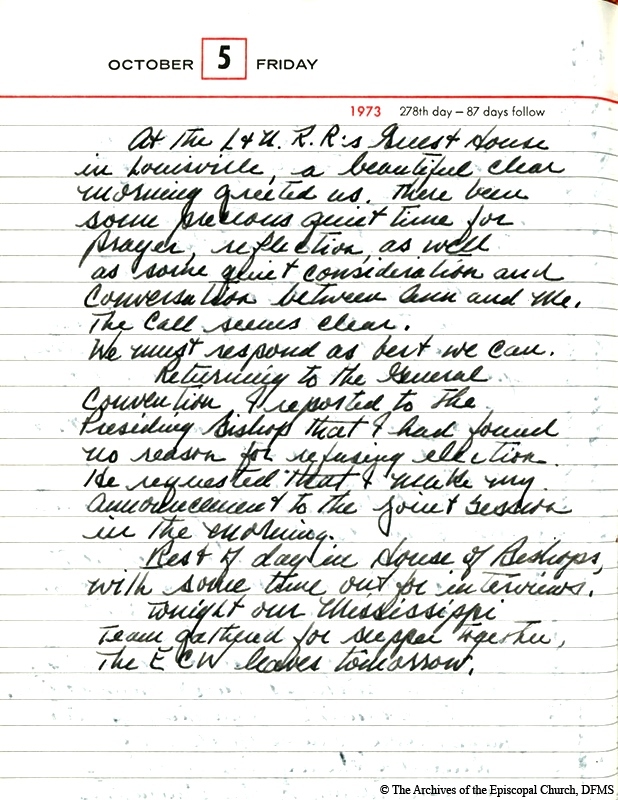 OCTOBER 5 FRIDAY
1973 278th day – 87 days follow
At the L & N. R.R.'s Guest House
in Louisville, a beautiful clear
morning greeted us. There been
some precious quiet time for
prayer, reflection, as well
as some quiet consideration and
conversation between Ann and me.
The call seems clear.
We must respond as best we can.
Returning to the General
Convention, I reported to the
Presiding Bishop that I had found
no reason for refusing election.
He requested that I make my
announcement to the joint session
in the morning.
Rest of day in House of Bishops,
with some time out for interviews.
Tonight our Mississippi
team gathered for supper together,
The ECW leaves tomorrow.
© The Archives of the Episcopal Church, DFMS